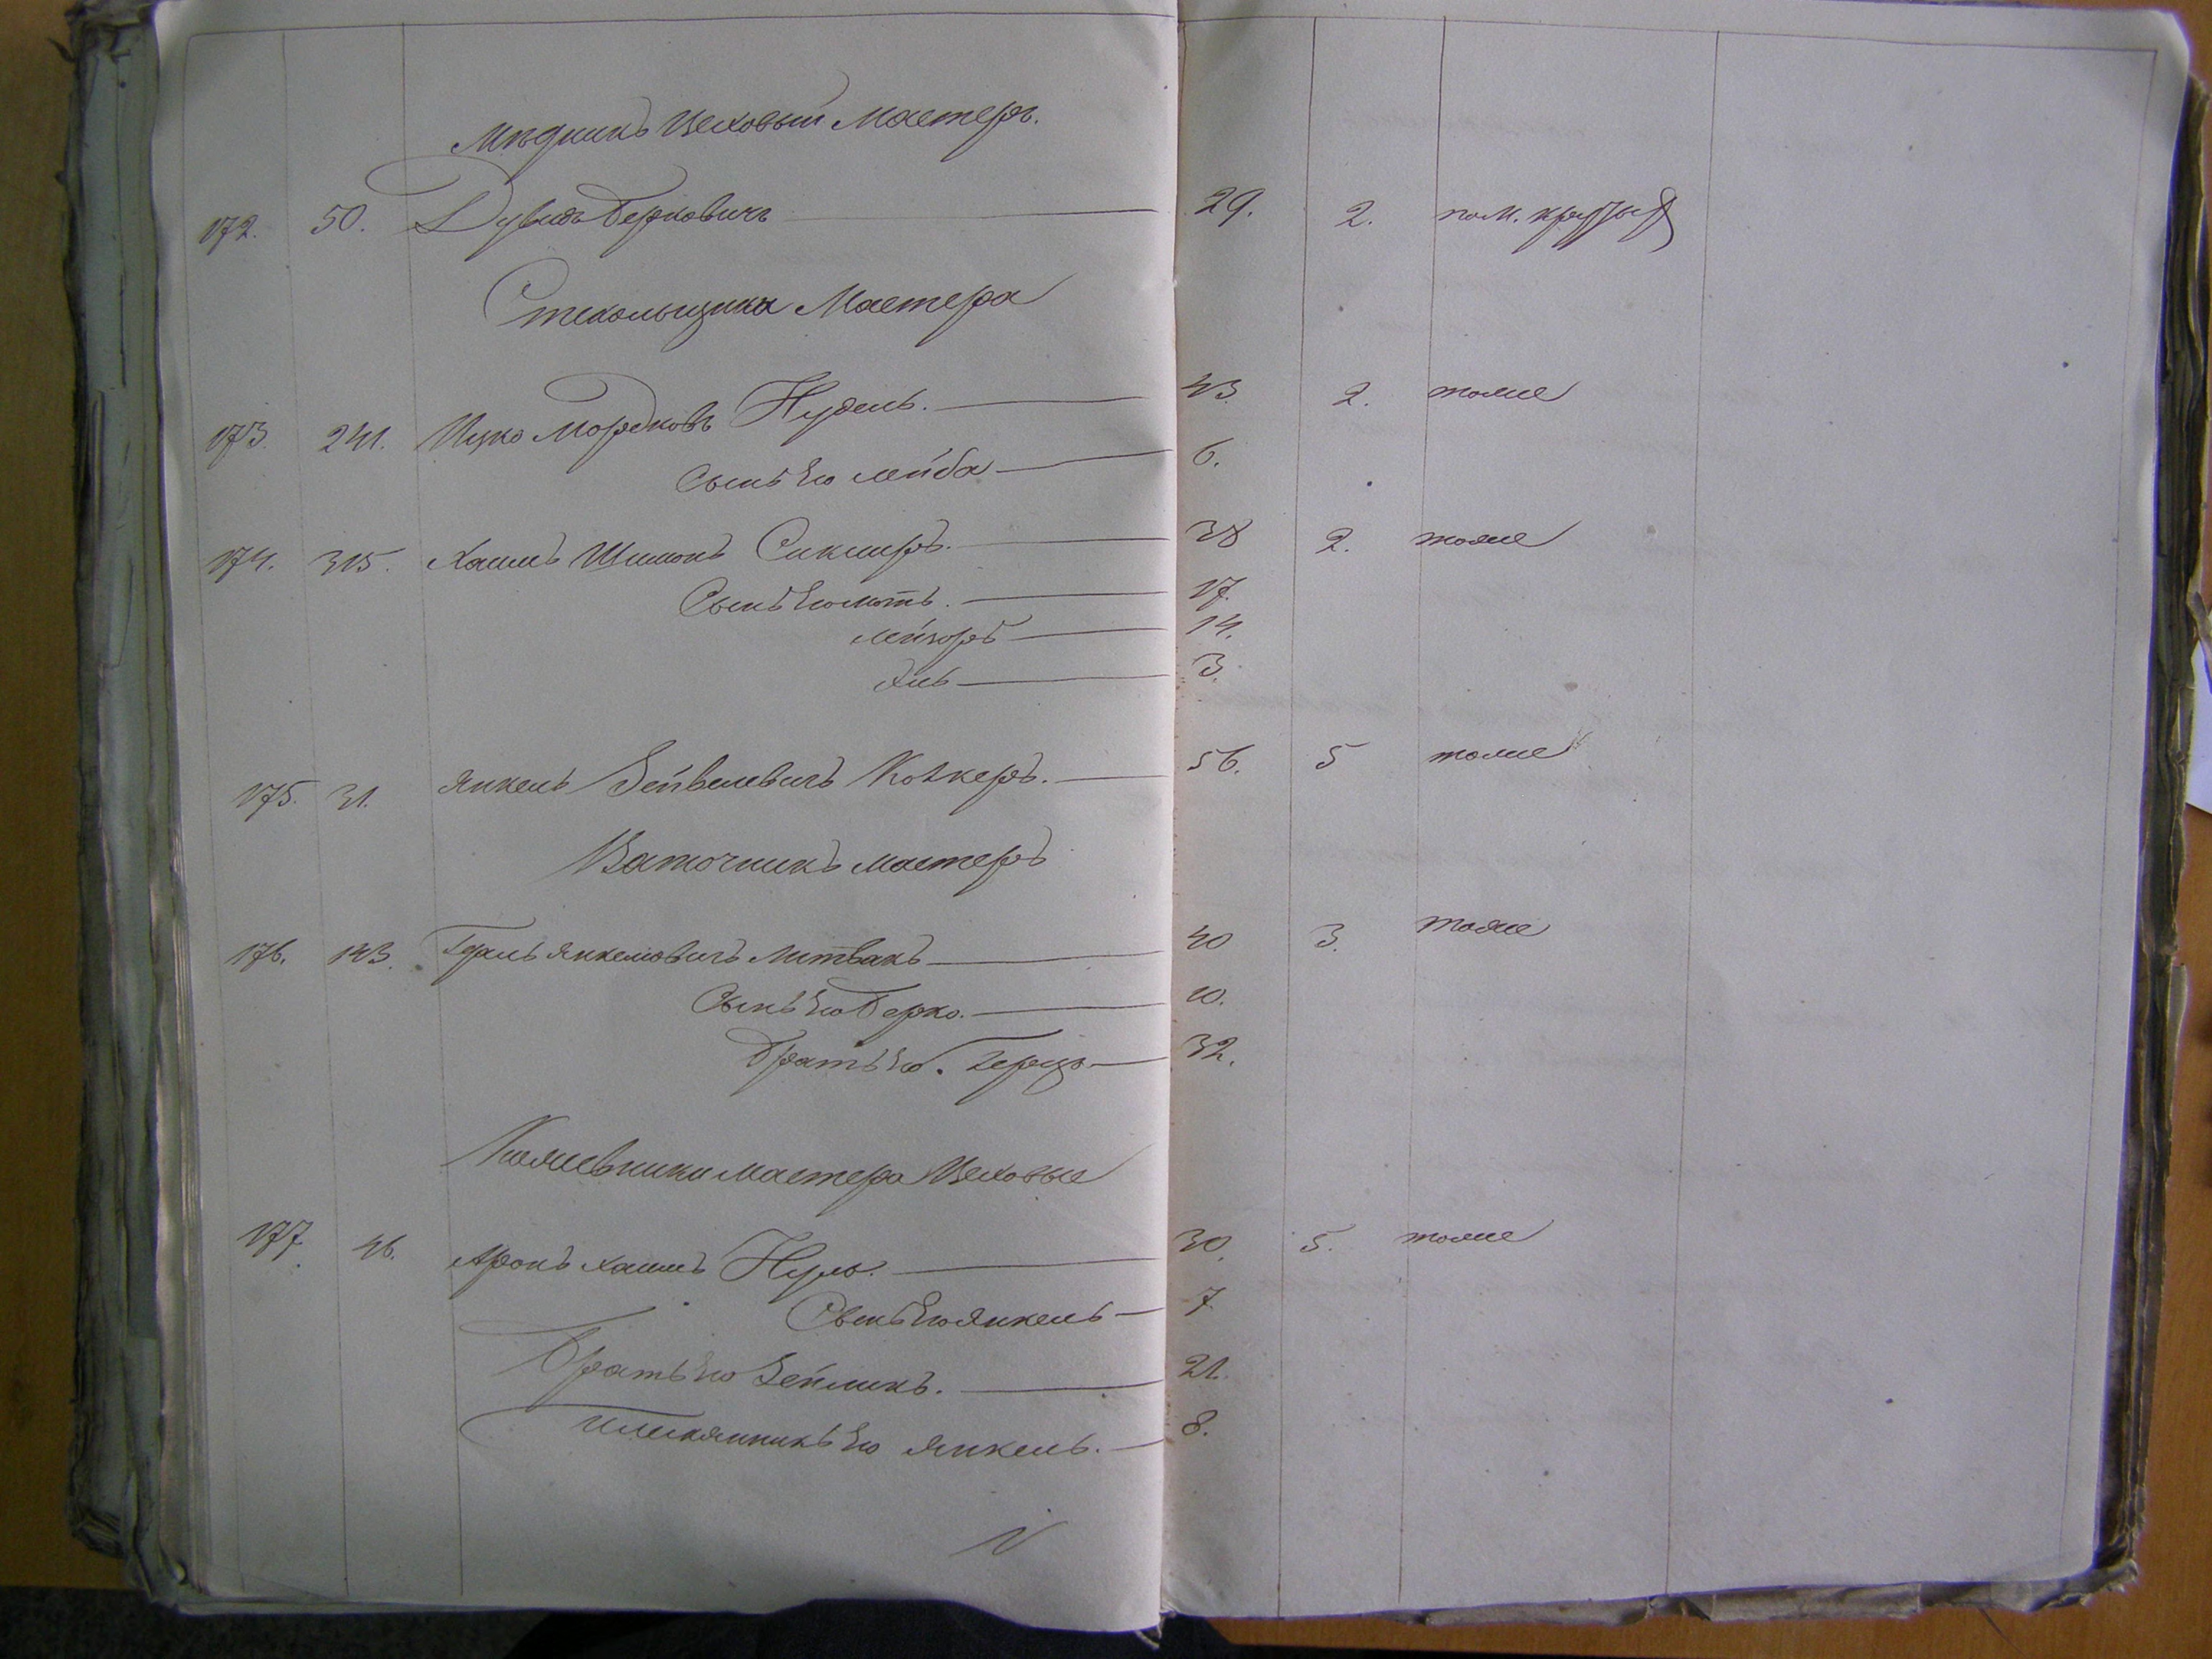 Мѣдникъ Цеховый Мастеръ.
172. 50. Дувидъ Берковичъ 29. 2. пол.
Стекольщики Мастера
173. 241. Ицко Мордковъ Нудель. 43. 2. тоже
Сынъ Его Лейба 6.
174. 315. Хаимъ Шимонъ 38 2. тоже
Сынъ Его 17.
Лейзоръ 14.
3.
175. 31. Янкель Зейвелевичъ 56. 5 тоже
Ваточникъ Мастеръ
176. 143. Янкелювичъ Литвакъ 40 3. тоже
Сынъ Его Берко. 10.
Братъ Его. Герцъ 32.
Мастера Цеховые
177. 46. Аронъ Хаимъ 30. 5. тоже
Сынъ Его Янкель 7
Братъ Его Зейликъ. 21.
Племянникъ Его Янкель. 8.